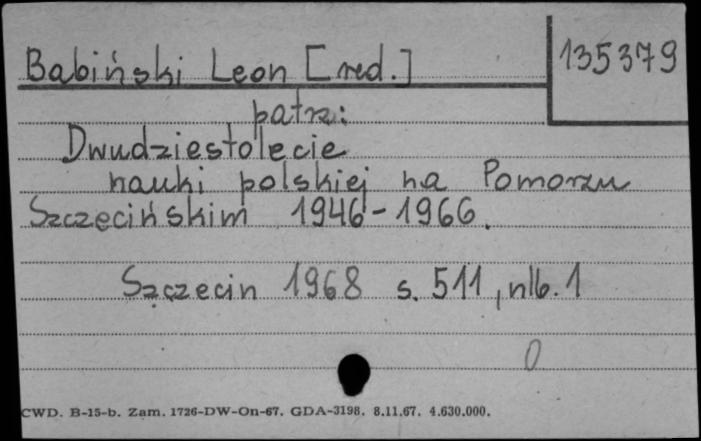 Babiński Leon [red.]
135379
patrz:
Dwudziestolecie
nauki polskiej na Pomorzu
Szczecińskim 1946-1966.
Szczecin 1968 s. 511, nlb. 1
0
CWD. B-15-b. Zam. 1726-DW-On-67. GDA-3198. 8.11.67. 4.630.000.